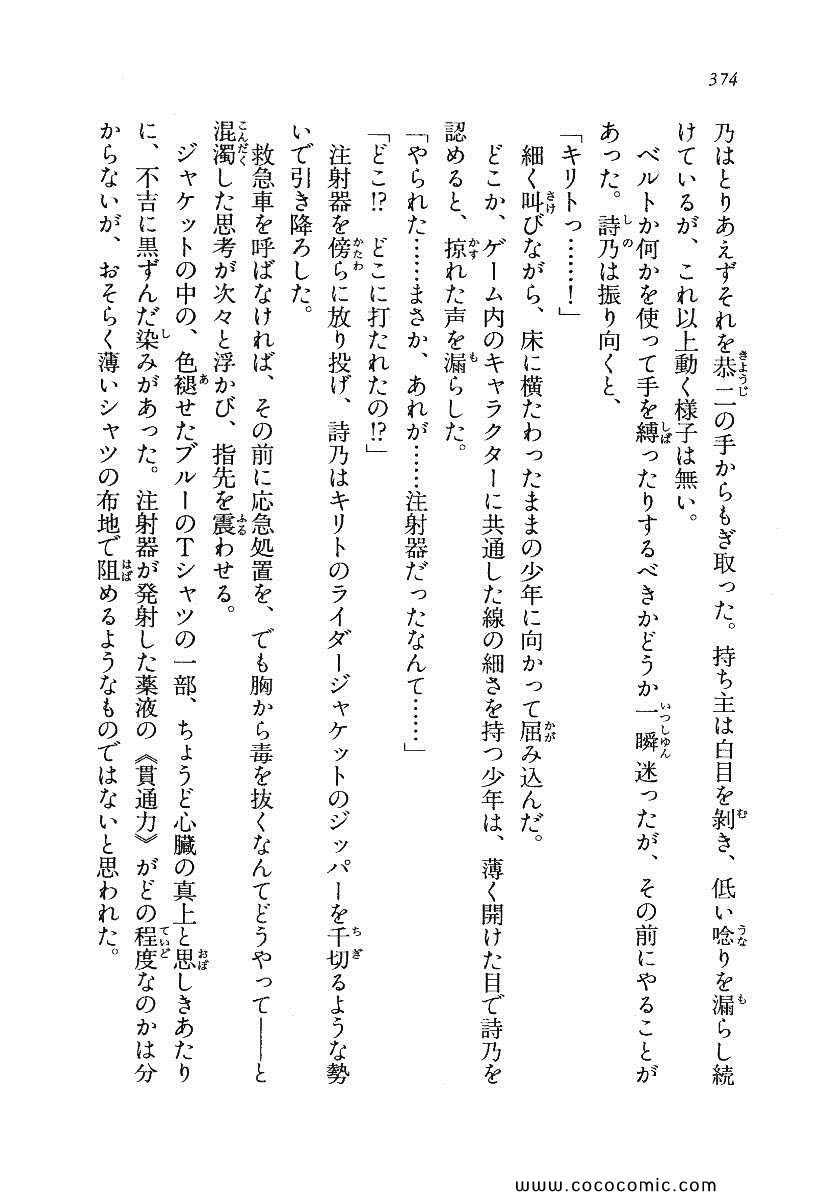 374
乃はとりあえずそれを恭二の手からもぎ取った。持ち主は白目を剝き、低い唸りを漏らし続
けているが、これ以上動く様子は無い。
ベルトか何かを使って手を縛ったりするべきかどうか一瞬迷ったが、その前にやることが
あった。詩乃は振り向くと、
「キリトっ……！」
細く叫びながら、床に横たわったままの少年に向かって屈み込んだ。
どこか、ゲーム内のキャラクターに共通した線の細さを持つ少年は、薄く開けた目で詩乃を
認めると、掠れた声を漏らした。
「やられた……まさか、あれが……注射器だったなんて……」
「どこ!?　どこに打たれたの!?」
注射器を傍らに放り投げ、詩乃はキリトのライダージャケットのジッパーを千切るような勢
いで引き降ろした。
救急車を呼ばなければ、その前に応急処置を、でも胸から毒を抜くなんてどうやって――と
混濁した思考が次々と浮かび、指先を震わせる。
ジャケットの中の、色褪せたブルーのTシャツの一部、ちょうど心臓の真上と思しきあたり
に、不吉に黒ずんだ染みがあった。注射器が発射した薬液の《貫通力》がどの程度なのかは分
からないが、おそらく薄いシャツの布地で阻めるようなものではないと思われた。
www.cococomic.com